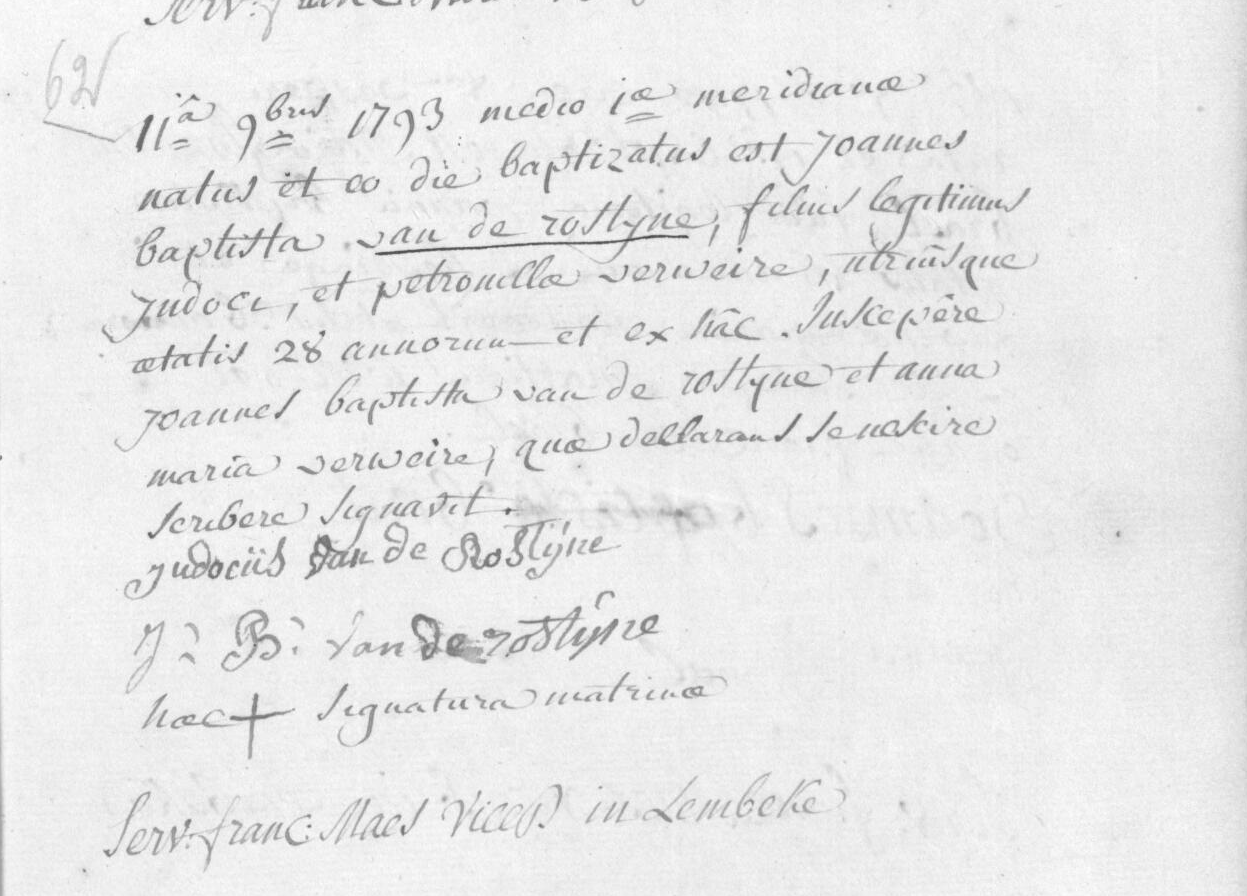 62
11â 9bris 1793 medio 1æ meridianæ
natus et eo die baptizatus est joannes
baptista van de rostyne, filius legitimus
judoci, et petronillæ verweire, utriûsque
ætatis 28 annorum et ex hâc. suscepêre
joannes baptista van de rostyne et anna
maria verweire, quæ declarans se nescire
scribere signavit.
judocus van de Rostÿne
J: B: van de rostÿne
hæc + signatura matrinæ
Serv: franc: Maes ViceP. in Lembeke